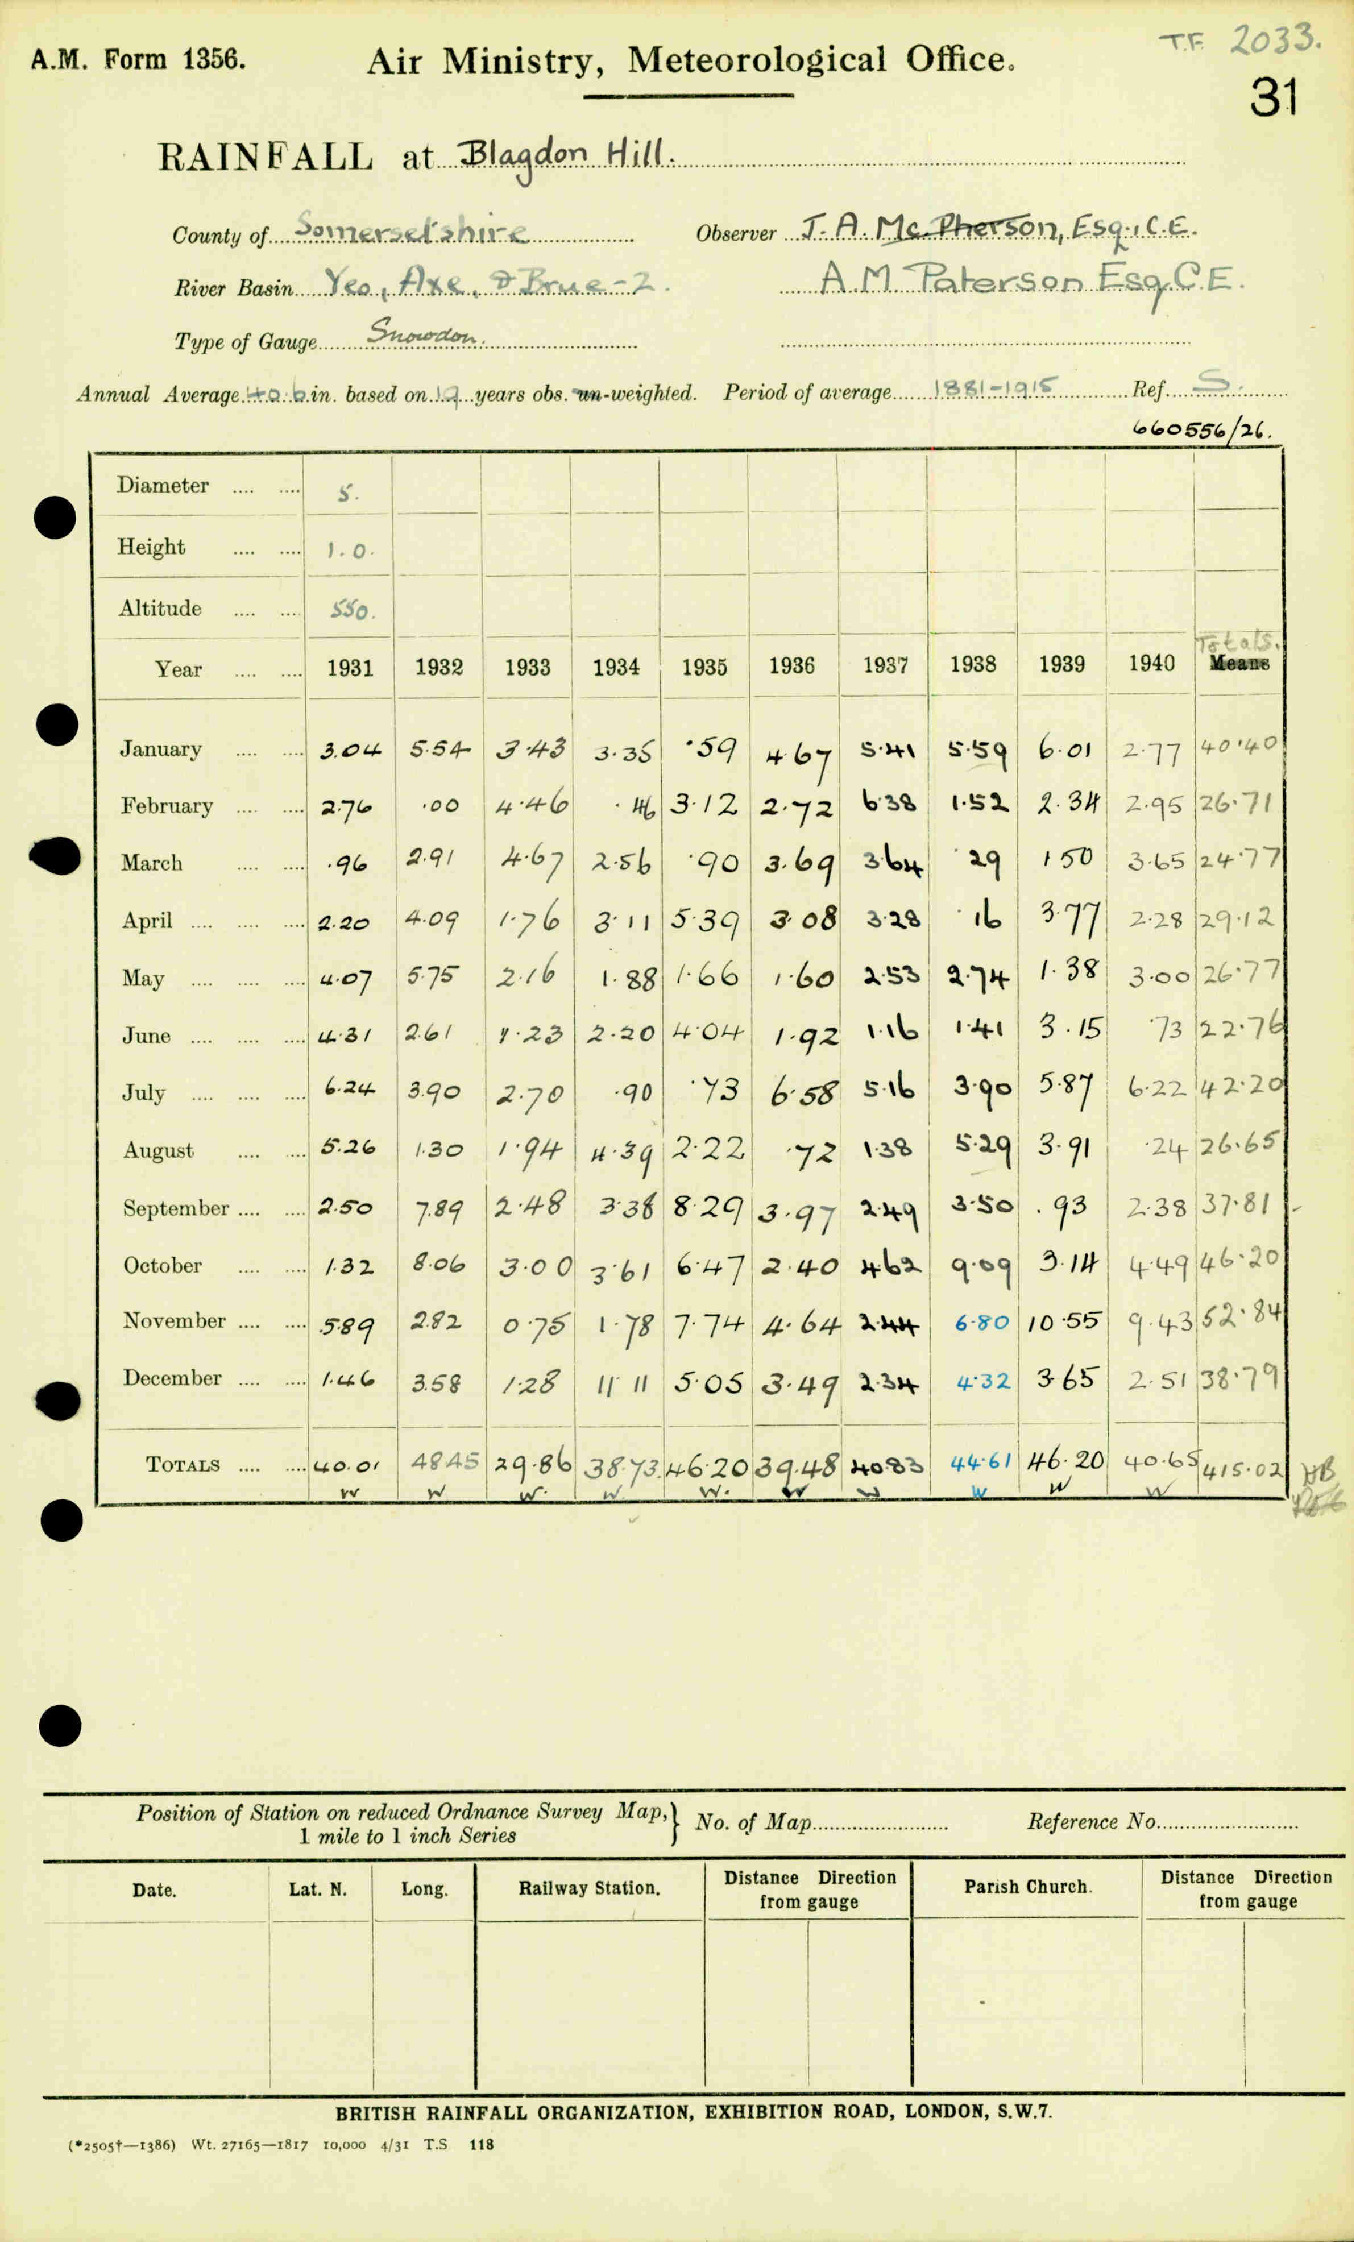 T.F. 2033.
A.M. Form 1356. Air Ministry, Meteorological Office.
31
RAINFALL at Blagdon Hill.
County of Somersetshire Observer J. A. McPherson, Esq., C.E.
River Basin Yeo, Axe, & Brue-2. A.M. Paterson Esq. C.E.
Type of Gauge Snowdon.
Annual Average 40.6 in. based on 19 years obs. un-weighted. Period of average 1881-1915 Ref. S.
660556/26.
Diameter 5.
Height 1.0.
Altitude 550.
Totals.
Year 1931 1932 1933 1934 1935 1936 1937 1938 1939 1940 Means
January 3.04 5.54 3.43 3.35 .59 4.67 5.41 5.59 6.01 2.77 40.40
February 2.76 .00 4.46 .46 3.12 2.72 6.38 1.52 2.34 2.95 26.71
March .96 2.91 4.67 2.56 .90 3.69 3.64 .29 1.50 3.65 24.77
April 2.20 4.09 1.76 3.11 5.39 3.08 3.28 .16 3.77 2.28 29.12
May 4.07 5.75 2.16 1.88 1.66 1.60 2.53 2.74 1.38 3.00 26.77
June 4.31 2.61 1.23 2.20 4.04 1.92 1.16 1.41 3.15 .73 22.76
July 6.24 3.90 2.70 .90 .73 6.58 5.16 3.90 5.87 6.22 42.20
August 5.26 1.30 1.94 4.39 2.22 .72 1.38 5.29 3.91 .24 26.65
September 2.50 7.89 2.48 3.38 8.29 3.97 2.49 3.50 .93 2.38 37.81
October 1.32 8.06 3.00 3.61 6.47 2.40 4.62 9.09 3.14 4.49 46.20
November 5.89 2.82 0.75 1.78 7.74 4.64 2.44 6.80 10.55 9.43 52.84
December 1.46 3.58 1.28 11.11 5.05 3.49 2.34 4.32 3.65 2.51 38.79
TOTALS 40.01 48.45 29.86 38.73 46.20 39.48 40.83 44.61 46.20 40.65 415.02 HB
W W W. W W. W W W W W
Position of Station on reduced Ordnance Survey Map, } No. of Map Reference No.
1 mile to 1 inch Series
Date. Lat. N. Long. Railway Station. Distance Direction Parish Church. Distance Direction
from gauge from gauge
BRITISH RAINFALL ORGANIZATION, EXHIBITION ROAD, LONDON, S.W.7.
(*2505†—1386) Wt. 27165—1817 10,000 4/31 T.S 118